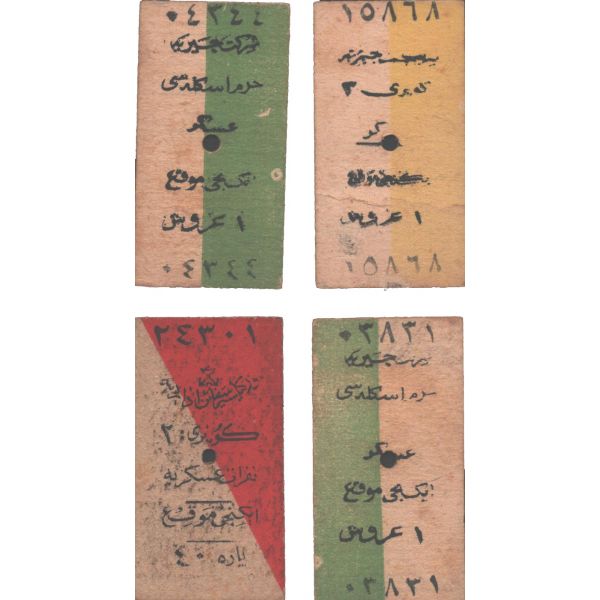 ٠٤٣٤٤
شركت خيريه
حرم اسكله سى
عسكر
ايكنجى موقع
١ غروش
٠٤٣٤٤
١٥٨٦٨
كوپرى ٣
ايكنجى موقع
١ غروش
١٥٨٦٨
٢٤٣٠١
كوپرى ٢٠
نفرات عسكريه
ايكنجى موقع
پاره ٤٠
٠٣٨٣١
شركت خيريه
حرم اسكله سى
عسكر
ايكنجى موقع
١ غروش
٠٣٨٣١